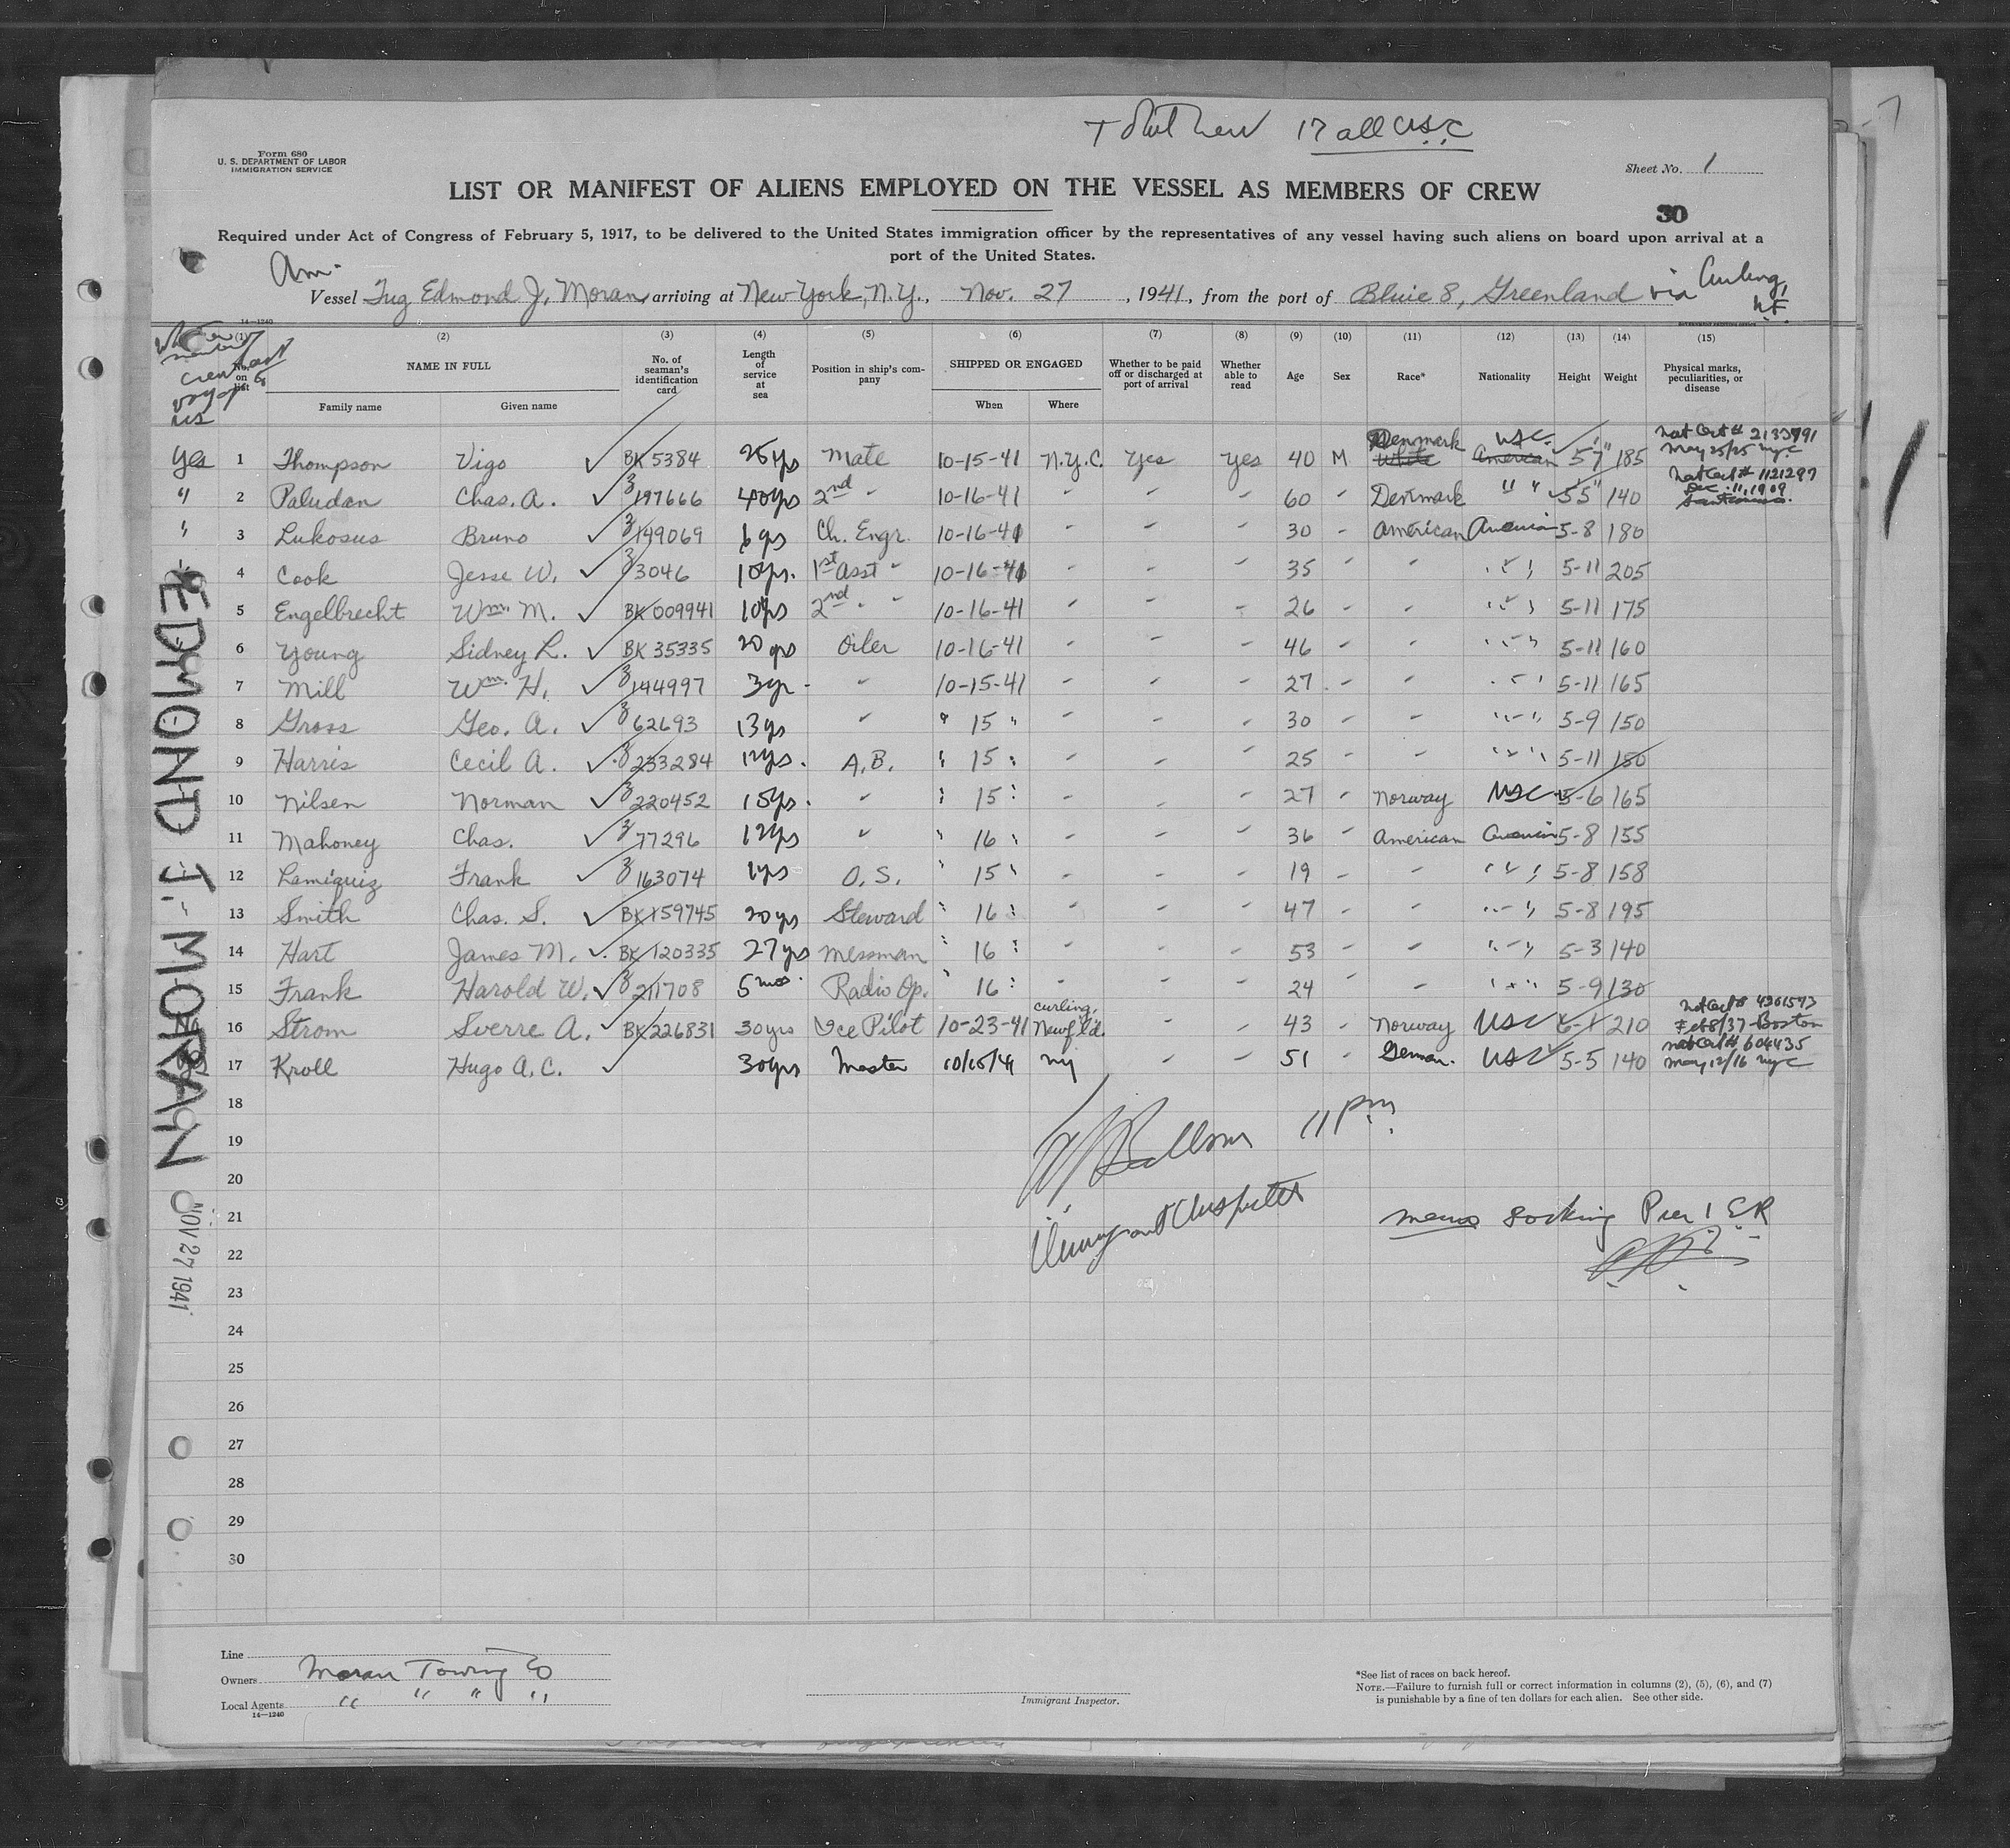 17 all USC
Form 680
U. S. DEPARTMENT OF LABOR
IMMIGRATION SERVICE
Sheet No. 1
LIST OR MANIFEST OF ALIENS EMPLOYED ON THE VESSEL AS MEMBERS OF CREW
30
Required under Act of Congress of February 5, 1917, to be delivered to the United States immigration officer by the representatives of any vessel having such aliens on board upon arrival at a
port of the United States.
Am.
Vessel Tug Edmond J. Moran, arriving at New York, N.Y., Nov. 27, 1941, from the port of Bluie 8, Greenland via Curling, N.F.
14—1240
(1) (2) (3) (4) (5) (6) (7) (8) (9) (10) (11) (12) (13) (14) (15)
No. on list NAME IN FULL No. of seaman's identification card Length of service at sea Position in ship's company SHIPPED OR ENGAGED Whether to be paid off or discharged at port of arrival Whether able to read Age Sex Race* Nationality Height Weight Physical marks, peculiarities, or disease
Family name Given name When Where
Yes 1 Thompson Vigo ✓ BK 5384 25 yrs Mate 10-15-41 N.Y.C. Yes Yes 40 M Denmark White USC. American 5'7" 185 Nat Cert # 2133791 May 25/25 nyc
" 2 Paludan Chas. A. ✓ Z 197666 40yrs 2nd " 10-16-41 " " " 60 " Denmark " " 5'5" 140 Nat Cert # 1121297 Dec. 11, 1909 San Francisco.
" 3 Lukosus Bruno ✓ Z 149069 6 yrs Ch. Engr. 10-16-41 " " " 30 " American American 5-8 180
4 Cook Jesse W. ✓ Z 3046 10yrs. 1st Asst " 10-16-41 " " " 35 " " " " 5-11 205
5 Engelbrecht Wm. M. ✓ BK 009941 10yrs 2nd " " 10-16-41 " " " 26 " " " " 5-11 175
6 Young Sidney L. ✓ BK 35335 20 yrs Oiler 10-16-41 " " " 46 " " " " 5-11 160
7 Mill Wm. H. ✓ Z 144997 3yr. " 10-15-41 " " " 27 " " " " 5-11 165
8 Gross Geo. A. ✓ Z 62693 13yrs " " 15 " " " " 30 " " " " 5-9 150
9 Harris Cecil A. ✓ Z 233284 12yrs. A.B. " 15 " " " " 25 " " " " 5-11 150
10 Nilsen Norman ✓ Z 220452 15yrs. " " 15 " " " " 27 " Norway USC 5-6 165
11 Mahoney Chas. ✓ Z 77296 12yrs " " 16 " " " " 36 " American American 5-8 155
12 Lamiquiz Frank ✓ Z 163074 1yrs O.S. " 15 " " " " 19 " " " " 5-8 158
13 Smith Chas. S. ✓ BK 159745 20 yrs Steward " 16 " " " " 47 " " " " 5-8 195
14 Hart James M. ✓ BK 120335 27 yrs Messman " 16 " " " " 53 " " " " 5-3 140
15 Frank Harold W. ✓ Z 211708 5 mos. Radio Op. " 16 " " " " 24 " " " " 5-9 130
16 Strom Sverre A. ✓ BK 226831 30yrs Ice Pilot 10-23-41 Curling, Newfld. " " 43 " Norway USC 6-1 210 Nat Cert # 4301593 Feb 8/37 - Boston
17 Kroll Hugo A. C. ✓ 30yrs Master 10/15/41 ny " " 51 " German. USC 5-5 140 nat Cert # 604435 May 12/16 nyc
18
19
20
21
22
23
24
25
26
27
28
29
30
11 pm
Immigrant Inspector
Pier 1 E R
EDMOND J. MORAN
NOV 27 1941
Line
Owners Moran Towing Co
Local Agents " " " "
14—1240
Immigrant Inspector.
*See list of races on back hereof.
NOTE.—Failure to furnish full or correct information in columns (2), (5), (6), and (7)
is punishable by a fine of ten dollars for each alien. See other side.